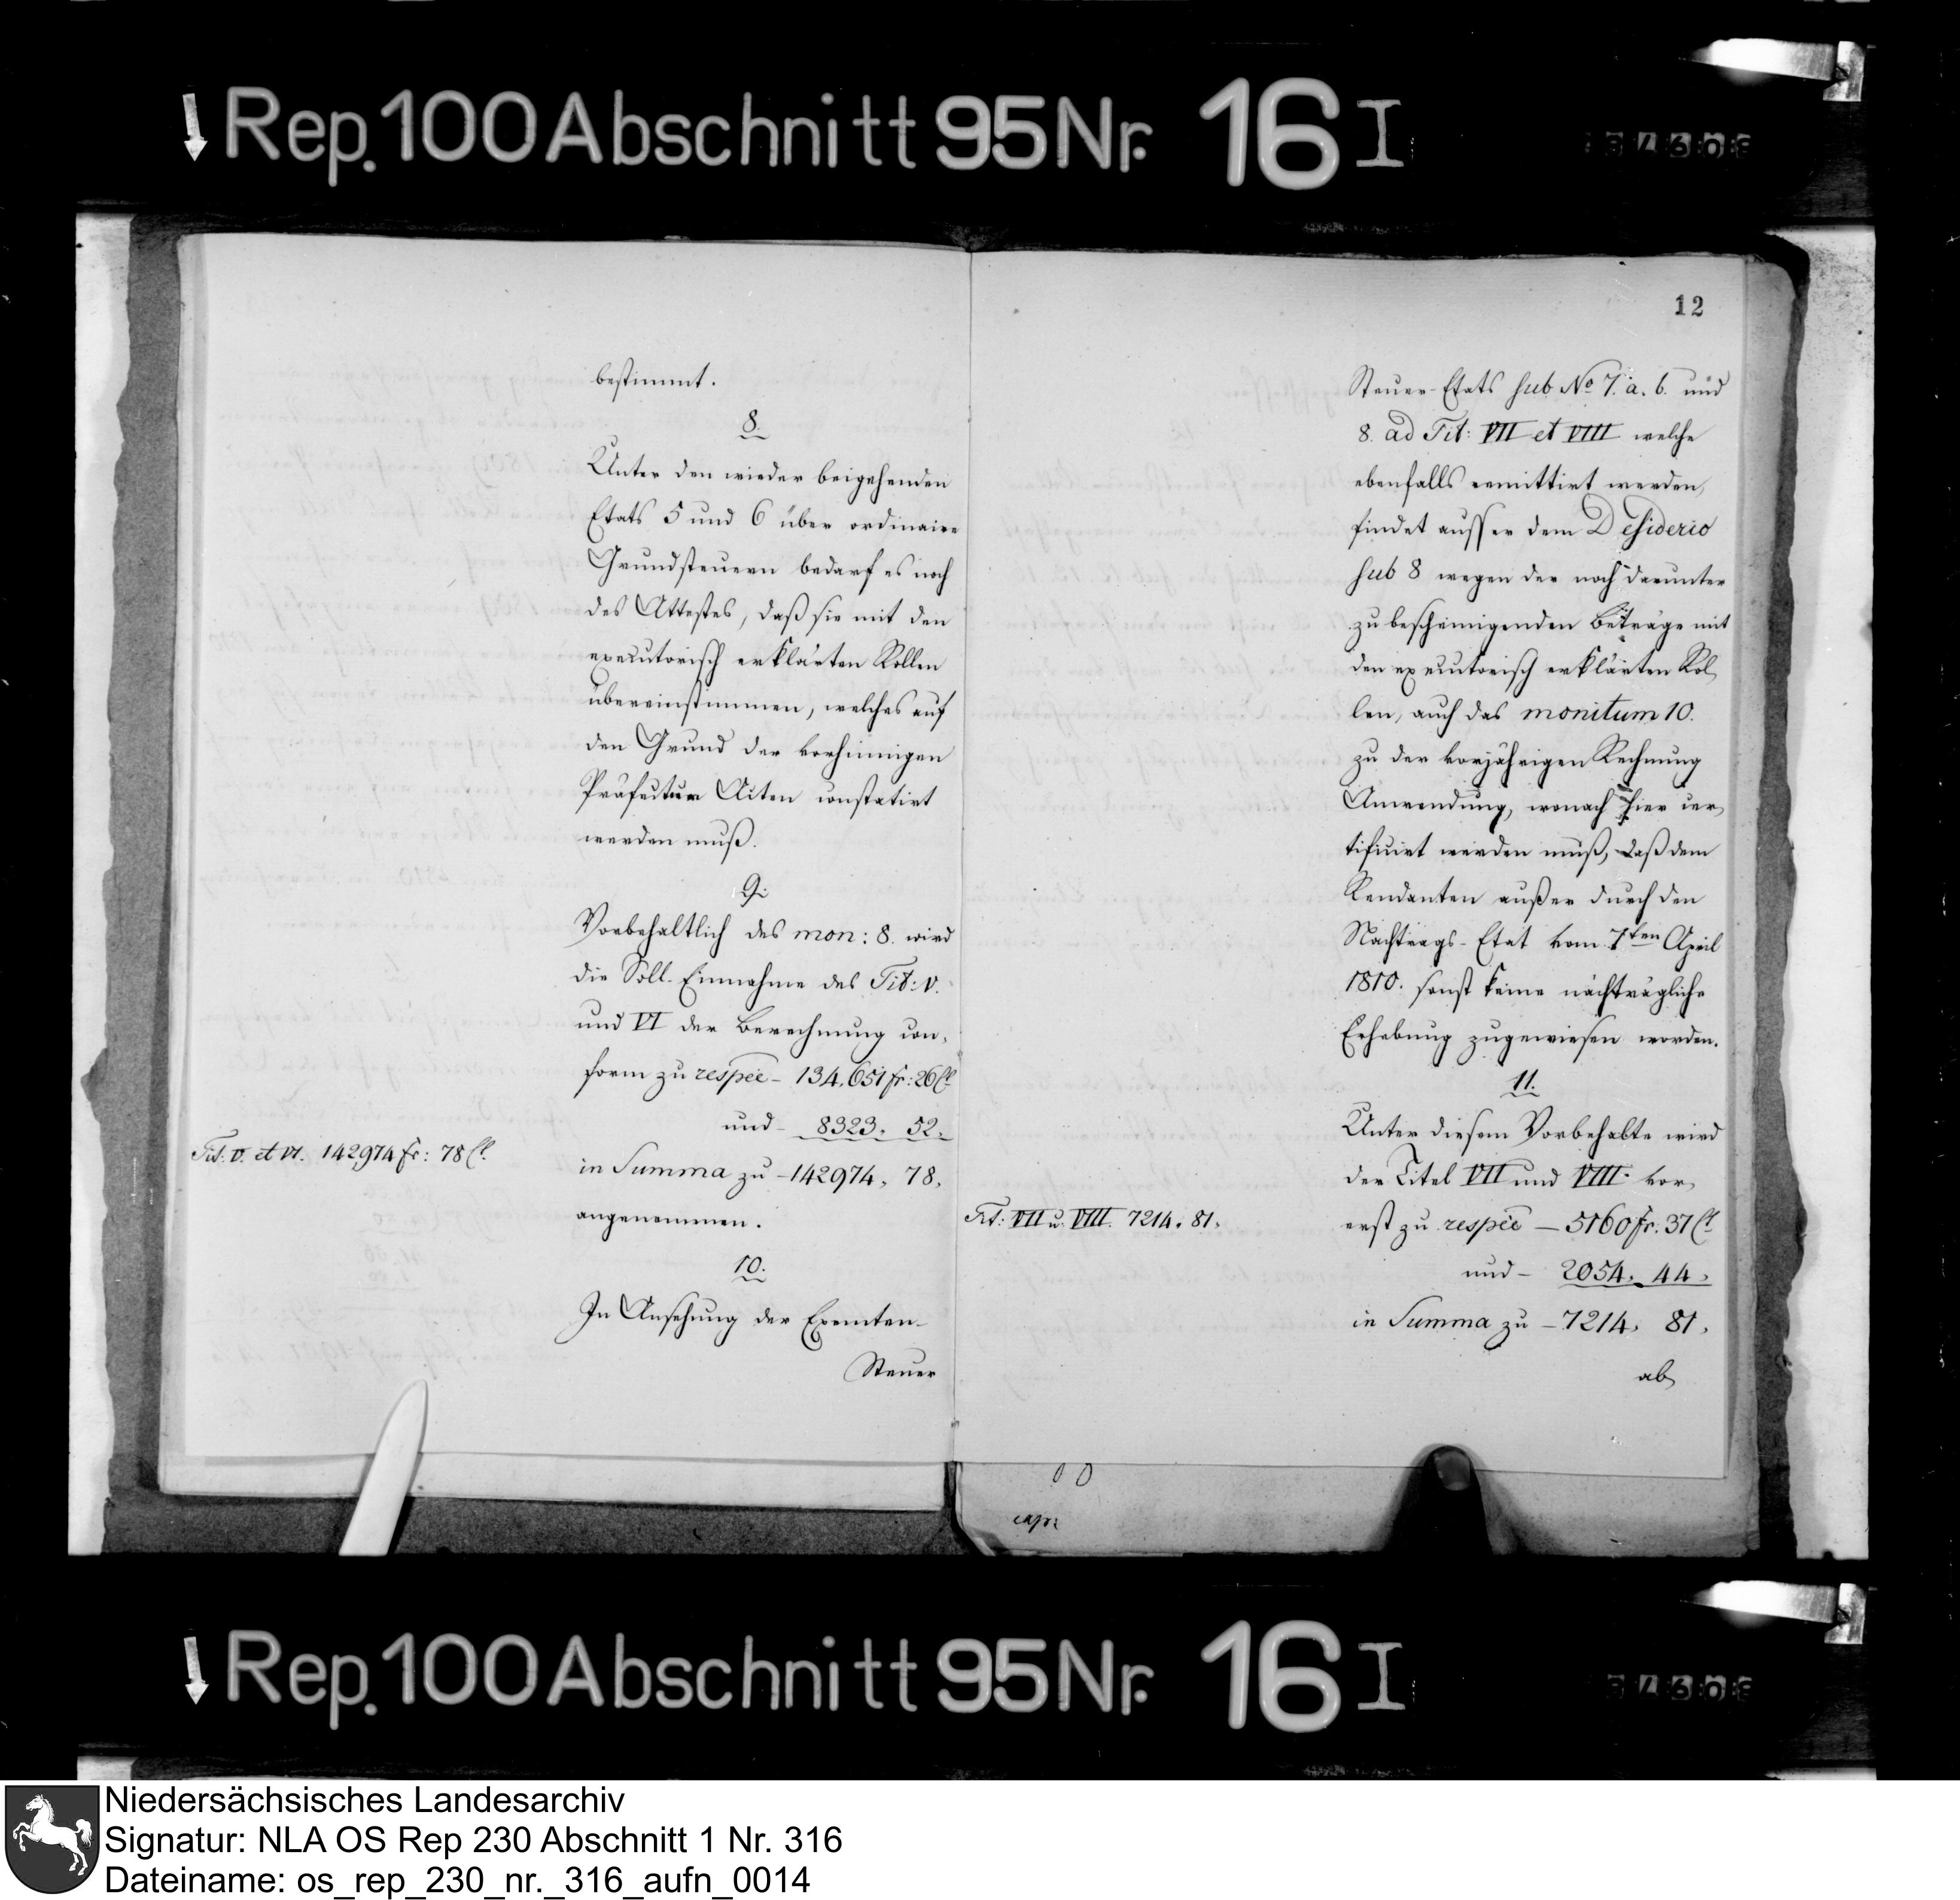 Rep. 100 Abschnitt 95 Nr. 16 I
bestimmt.
8.
Unter den wieder beigehenden
Etats 5 und 6 über ordinaire
Grundsteuern bedarf es noch
des Attestes, daß sie mit den
executorisch erklärten Rollen
übereinstimmen, welches auf
den Grund der vorhinnigen
Präfectur Acten constatirt
werden muß.
9.
Vorbehaltlich des mon: 8. wird
die Soll-Einnahme des Tit: V.
und VI der Berechnung con-
form zu respée - 134,651 fr: 26 Ct
und - 8323. 52.
Tit. V. et VI. 142974 fr: 78 Ct.
in Summa zu - 142974. 78.
angenommen.
10.
In Ansehung der Exemten-
Steuer
12
Steuer-Etats sub No 7. a. b. und
8. ad Tit: VII et VIII welche
ebenfalls remittirt werden,
findet ausser dem Desiderio
sub 8 wegen der noch darunter
zu bescheinigenden Beträge mit
den executorisch erklärten Rol-
len, auch das monitum 10.
zu der vorjährigen Rechnung
Anwendung, wonach hier cer-
tificirt werden muß, daß dem
Rendanten außer durch den
Nachtrags-Etat vom 7ten April
1810. sonst keine nachträgliche
Erhebung zugewiesen worden.
11.
Unter diesem Vorbehalte wird
der Titel VII und VIII. vor-
Tit: VII u. VIII. 7214. 81.
erst zu respée - 5160 fr. 37 Ct
und - 2054. 44.
in Summa zu - 7214. 81.
ab
Rep. 100 Abschnitt 95 Nr. 16 I
Niedersächsisches Landesarchiv
Signatur: NLA OS Rep 230 Abschnitt 1 Nr. 316
Dateiname: os_rep_230_nr._316_aufn_0014